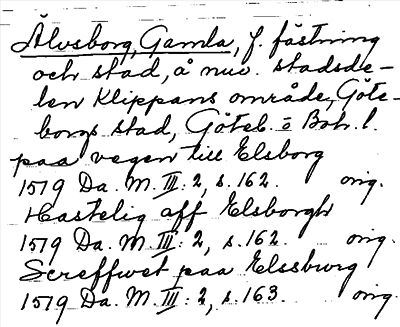 Älvsborg, Gamla, f. fästning
och stad, å nuv. stadsde-
len Klippans område, Göte-
borgs stad, Göteb. o Boh. l.
paa vegen till Elsborg
1519 Da. M. III: 2, s. 162. orig.
Hastelig aff Elsborgh
1519 Da. M. III: 2, s. 162. orig.
Screffwet paa Elssburg
1519 Da. M. III: 2, s. 163. orig.